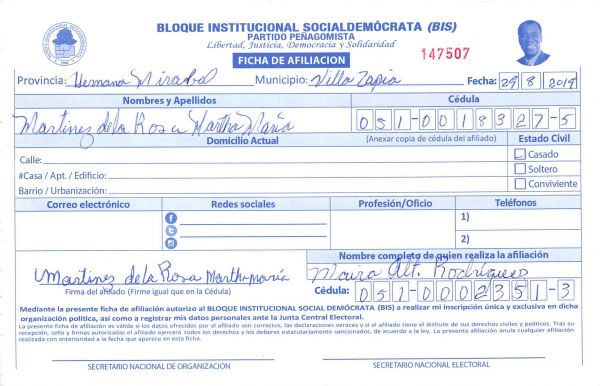 BLOQUE INSTITUCIONAL SOCIALDEMÓCRATA (BIS)
PARTIDO PEÑAGOMISTA
Libertad, Justicia, Democracia y Solidaridad
FICHA DE AFILIACION
147507
Provincia: Hermana Mirabal Municipio: Villa Tapia Fecha: 29 8 2019
Nombres y Apellidos Cédula
Martinez de la Rosa Martha María 051-0018327-5
Domicilio Actual (Anexar copia de cédula del afiliado) Estado Civil
Calle: Casado
#Casa / Apt. / Edificio: Soltero
Barrio / Urbanización: Conviviente
Correo electrónico Redes sociales Profesión/Oficio Teléfonos
1)
2)
Nombre completo de quien realiza la afiliación
Martinez de la Rosa Martha maría Maura Alt. Rodríguez
Firma del afiliado (Firme igual que en la Cédula) Cédula: 051-0002351-3
Mediante la presente ficha de afiliación autorizo al BLOQUE INSTITUCIONAL SOCIAL DEMÓCRATA (BIS) a realizar mi inscripción única y exclusiva en dicha
organización política, así como a registrar mis datos personales ante la Junta Central Electoral.
La presente ficha de afiliación es válida si los datos ofrecidos por el afiliado son correctos, las declaraciones veraces y si el afiliado tiene el disfrute de sus derechos civiles y políticos. Tras su
recepción, sello y firmas autorizadas el afiliado ejercerá todos los derechos y los deberes estatutariamente sancionados, de acuerdo a la ley. La presente afiliación anula cualquier afiliación
realizada con anterioridad a la fecha que aparece en esta ficha.
SECRETARIO NACIONAL DE ORGANIZACIÓN SECRETARIO NACIONAL ELECTORAL